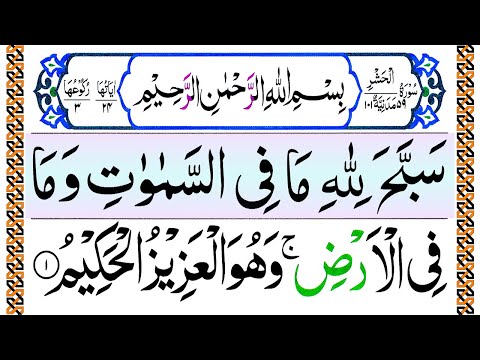 سُوْرَةُ الْحَشْرِ مَدَنِيَّةٌ ٥٩ ١٠١
بِسْمِ اللهِ الرَّحْمٰنِ الرَّحِيْمِ
اٰيَاتُهَا ٢٤ رُكُوْعُهَا ٣
سَبَّحَ لِلّٰهِ مَا فِى السَّمٰوٰتِ وَمَا
فِى الْاَرْضِ ۚ وَهُوَ الْعَزِيْزُ الْحَكِيْمُ ١